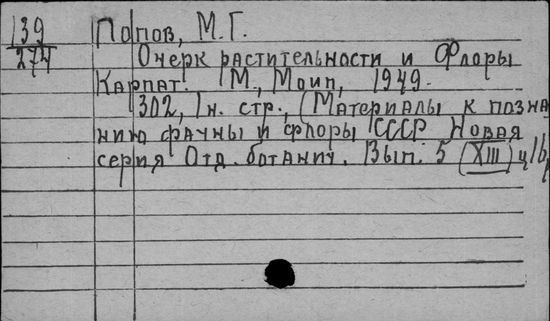 139
274
Попов, М.Г.
Очерк растительности и Флоры
Карпат. М., Моип, 1949.
302, 1 н. стр., (Материалы к позна
нию фауны и флоры СССР Новая
серия Отд. ботанич. Вып. 5 (XIII)